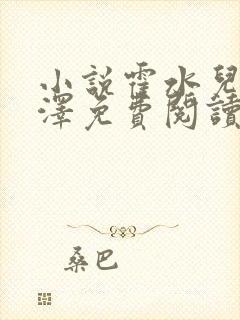 小說霍水兒
澤免費閱讀
桑巴